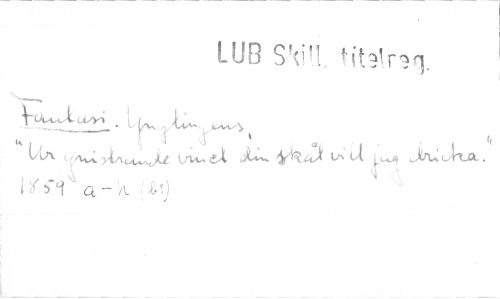 LUB Skill. titelreg.
Fantasi. Ynglingens,
"Ur gnistrande vinet din skål vill jag dricka."
1859 a-h (b1)